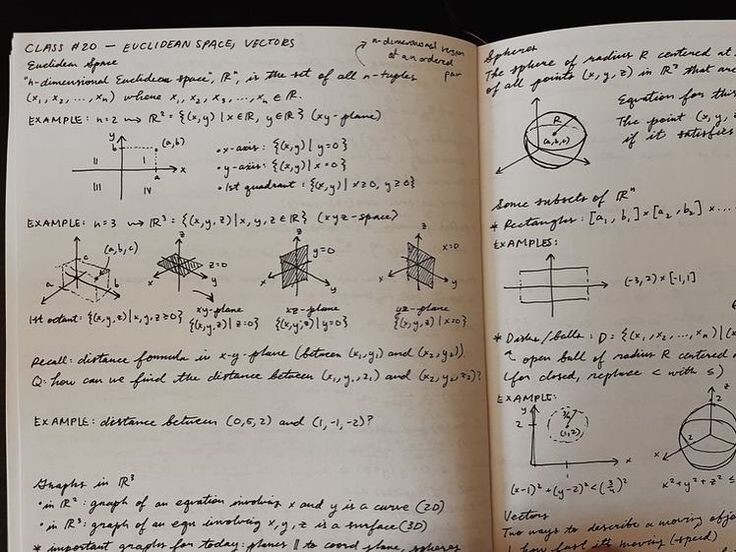 CLASS #20 — EUCLIDEAN SPACE, VECTORS
Euclidean Space
n-dimensional version
of an ordered
pair
"n-dimensional Euclidean space", ℝⁿ, is the set of all n-tuples
(x₁, x₂, ..., xₙ) where x₁, x₂, x₃, ..., xₙ ∈ ℝ.
EXAMPLE: n=2 ⇝ ℝ² = {(x,y) | x∈ℝ, y∈ℝ} (xy-plane)
y
b
(a,b)
II
I
a
x
III
IV
• x-axis: {(x,y) | y=0}
• y-axis: {(x,y) | x=0}
• 1st quadrant: {(x,y) | x≥0, y≥0}
EXAMPLE: n=3 ⇝ ℝ³ = {(x,y,z) | x,y,z∈ℝ} (xyz-space)
z
(a,b,c)
c
a
b
z
z=0
x
y
z
y=0
x
y
z
x=0
x
y
1st octant: {(x,y,z) | x,y,z≥0}
xy-plane
{(x,y,z) | z=0}
xz-plane
{(x,y,z) | y=0}
yz-plane
{(x,y,z) | x=0}
Recall: distance formula in x-y-plane (between (x₁,y₁) and (x₂,y₂)).
Q: how can we find the distance between (x₁,y₁,z₁) and (x₂,y₂,z₂)?
EXAMPLE: distance between (0,5,2) and (1,-1,-2)?
Graphs in ℝ³
• in ℝ²: graph of an equation involving x and y is a curve (2D)
• in ℝ³: graph of an eqn involving x,y,z is a surface (3D)
* important graphs for today: planes ∥ to coord plane, spheres
Spheres
The sphere of radius R centered at
of all points (x,y,z) in ℝ³ that are
R
(a,b,c)
Equation for this
The point (x,y,
if it satisfies
Some subsets of ℝⁿ
* Rectangles: [a₁,b₁]×[a₂,b₂]×...
EXAMPLES:
(-3,2)×[-1,1]
* Disks/balls: D = {(x₁,x₂,...,xₙ) | (x
open ball of radius R centered
(for closed, replace < with ≤)
EXAMPLE:
y
2
3/4
(1,2)
x
z
2
2
x
(x-1)²+(y-2)²<(3/4)²
x²+y²+z² ≤
Vectors
Two ways to describe a moving obje
how fast its moving (speed)